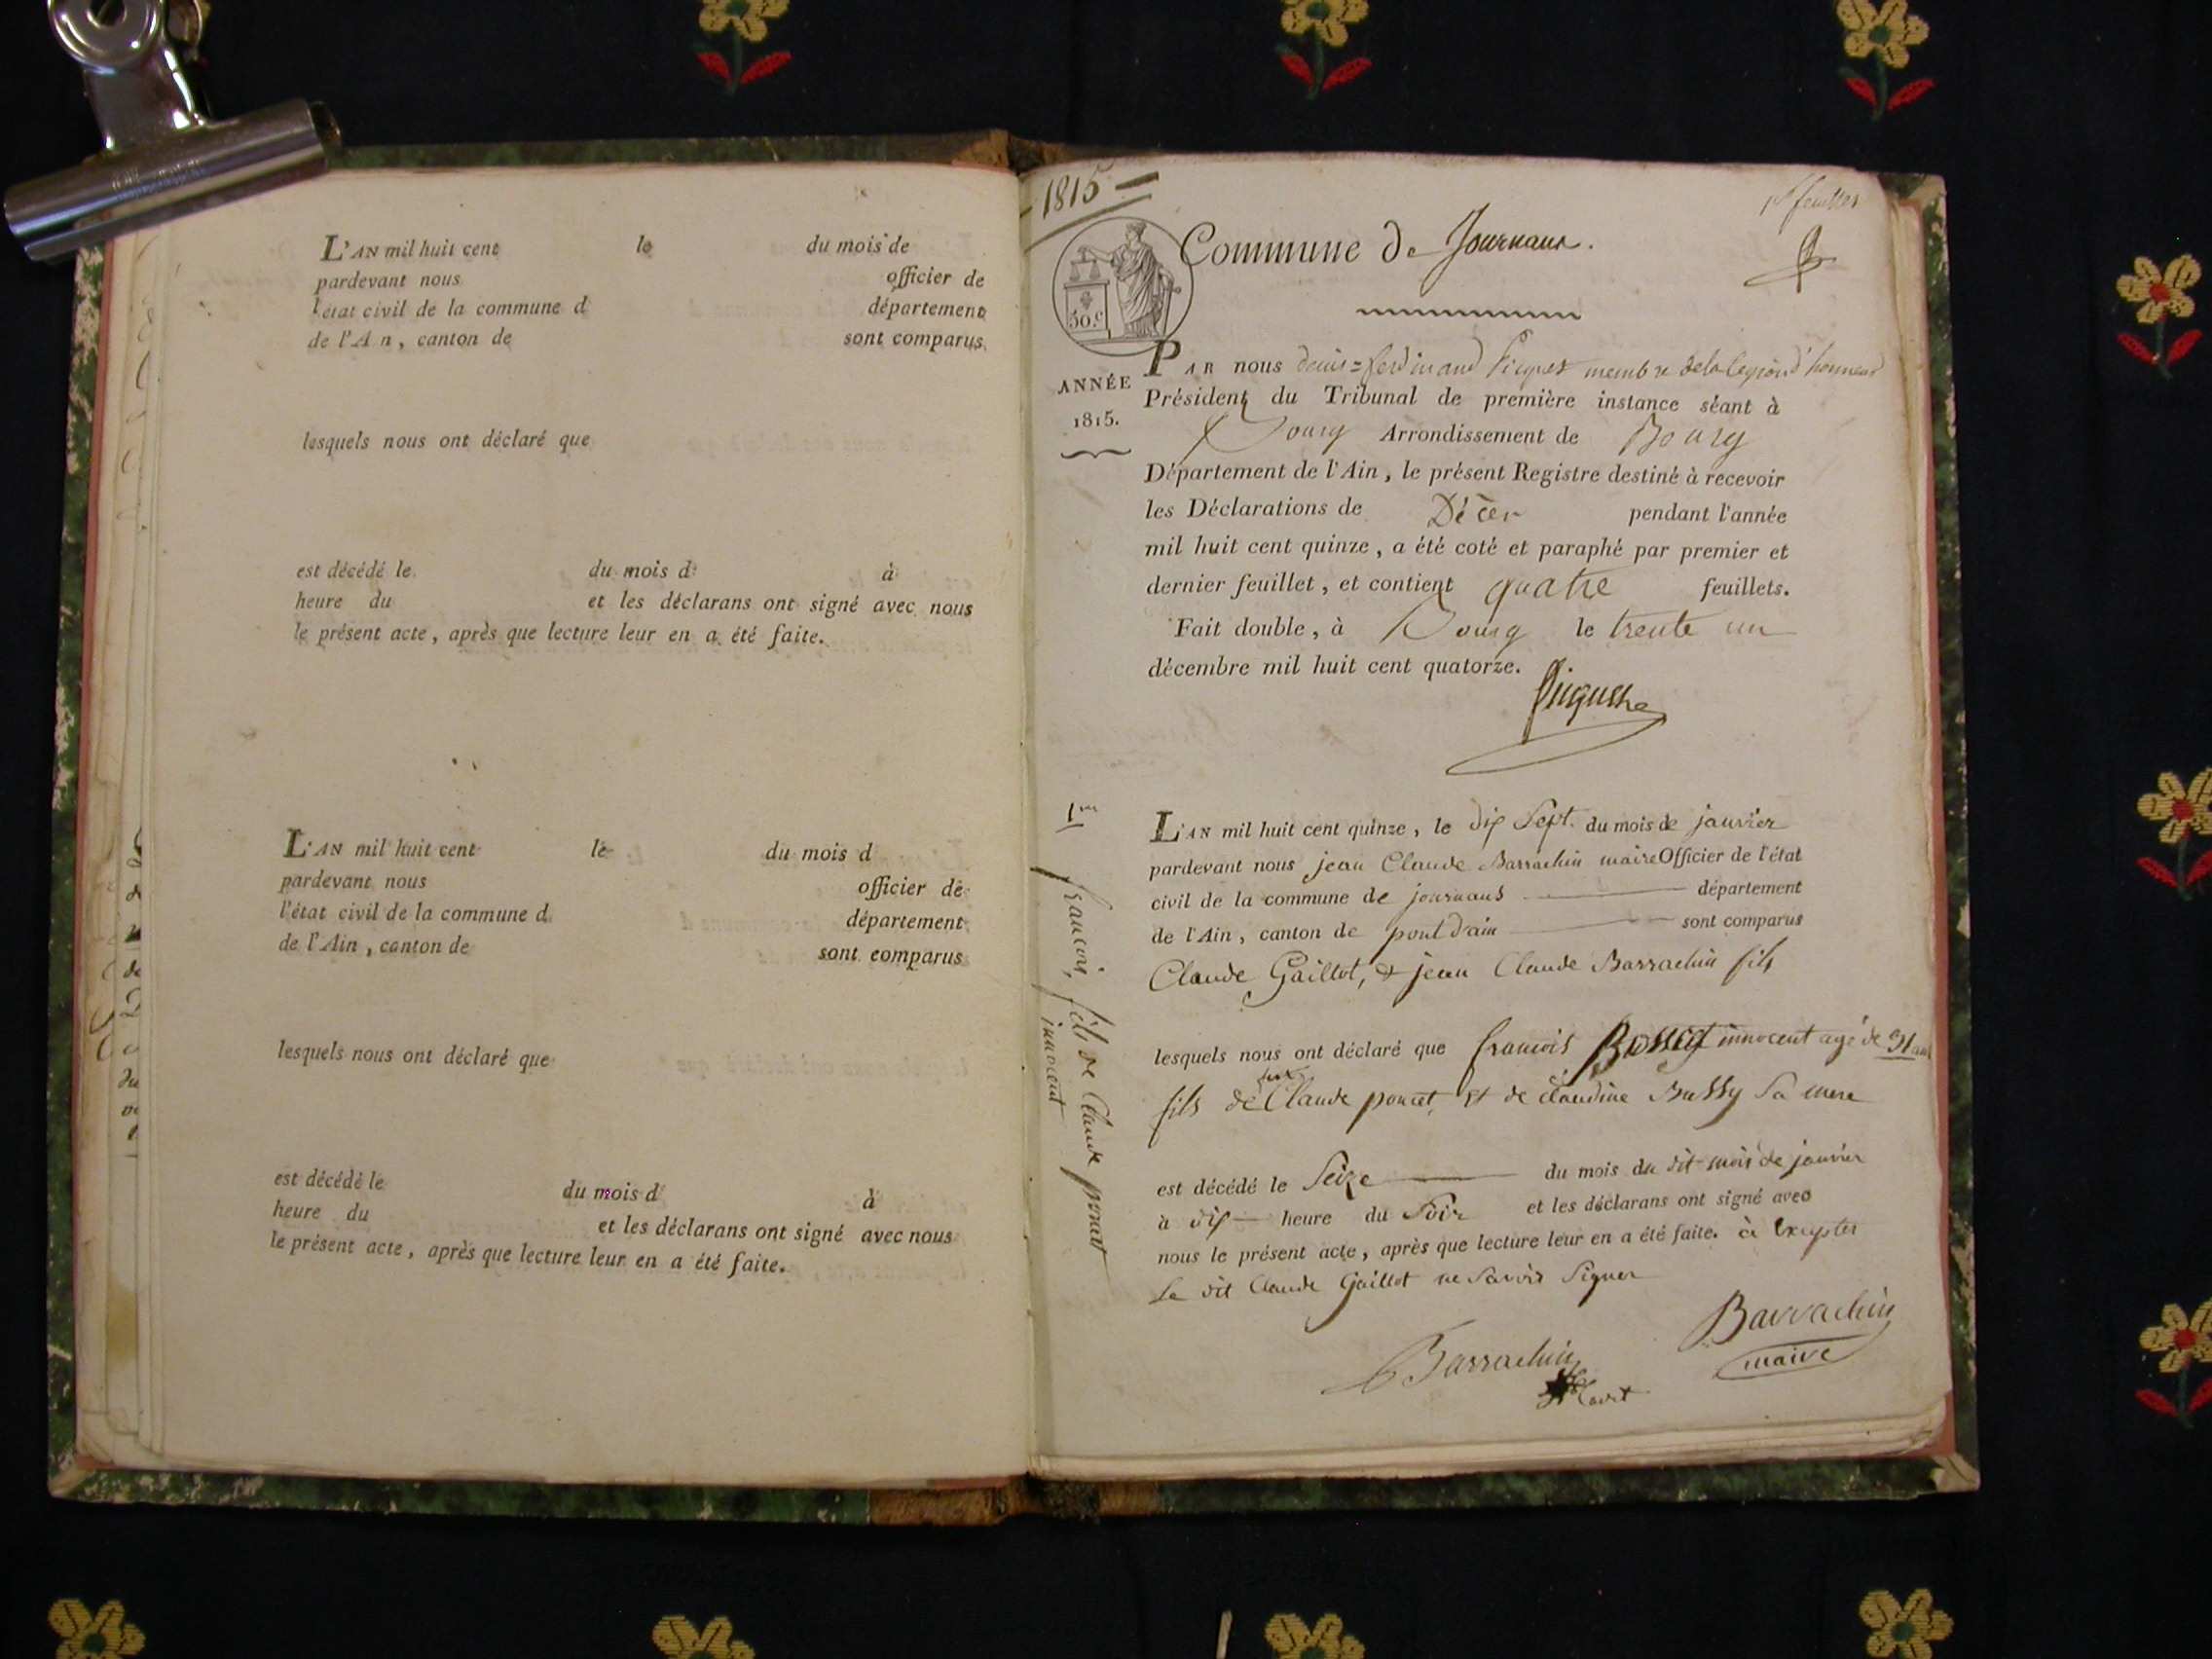 L'AN mil huit cent le du mois de
pardevant nous officier de
l'état civil de la commune d département
de l'Ain, canton de sont comparus
lesquels nous ont déclaré que
est décédé le du mois d à
heure du et les déclarans ont signé avec nous
le présent acte, après que lecture leur en a été faite.
L'AN mil huit cent le du mois d
pardevant nous officier de
l'état civil de la commune d département
de l'Ain, canton de sont comparus
lesquels nous ont déclaré que
est décédé le du mois d à
heure du et les déclarans ont signé avec nous
le présent acte, après que lecture leur en a été faite.
1815
feuillet
Commune de Journans.
50.c
ANNÉE
1815.
PAR nous denis=ferdinand membre de la legion d'honneur
Président du Tribunal de première instance séant à
Bourg Arrondissement de Bourg
Département de l'Ain, le présent Registre destiné à recevoir
les Déclarations de Décès pendant l'année
mil huit cent quinze, a été coté et paraphé par premier et
dernier feuillet, et contient quatre feuillets.
Fait double, à Bourg le trente un
décembre mil huit cent quatorze.
1er
françois, fils de Claude poncet
innocent
L'AN mil huit cent quinze, le dix sept du mois de janvier
pardevant nous jean Claude Barrachin maire Officier de l'état
civil de la commune de journans département
de l'Ain, canton de pont d'ain sont comparus
Claude Gaillot, & jean Claude Barrachin fils
lesquels nous ont déclaré que francois innocent agé de ans
fils de feux Claude poncet, et de claudine Bussy sa mere
est décédé le seize du mois du dit mois de janvier
à dix heure du soir et les déclarans ont signé avec
nous le présent acte, après que lecture leur en a été faite. à excepter
Le dit Claude Gaillot ne savoir signer
Barrachin
Barrachin
maire